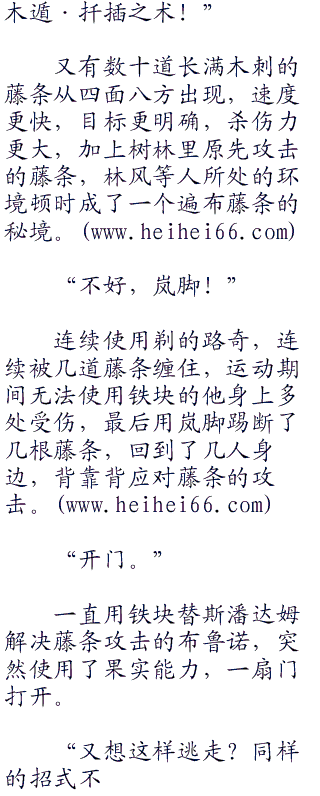 木遁·扦插之术！”
又有数十道长满木刺的
藤条从四面八方出现，速度
更快，目标更明确，杀伤力
更大，加上树林里原先攻击
的藤条，林风等人所处的环
境顿时成了一个遍布藤条的
秘境。(www.heihei66.com)
“不好，岚脚！”
连续使用剃的路奇，连
续被几道藤条缠住，运动期
间无法使用铁块的他身上多
处受伤，最后用岚脚踢断了
几根藤条，回到了几人身
边，背靠背应对藤条的攻
击。(www.heihei66.com)
“开门。”
一直用铁块替斯潘达姆
解决藤条攻击的布鲁诺，突
然使用了果实能力，一扇门
打开。
“又想这样逃走？同样
的招式不